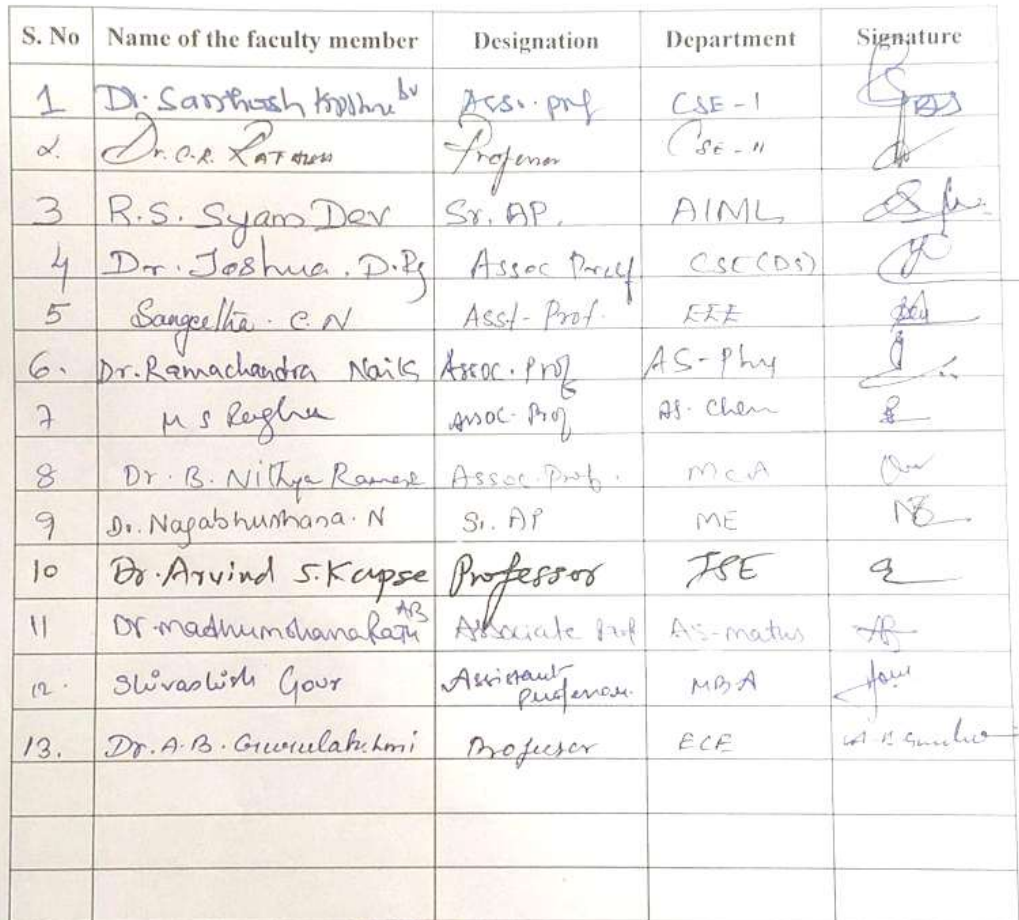 S. No Name of the faculty member Designation Department Signature
1 Dr. Santhosh Krishna BV Ass. prof CSE-1
2. Dr. C.R. Professor CSE-II
3 R.S. Syam Dev Sr. AP. AIML
4 Dr. Joshua. D. Assoc Prof CSE(DS)
5 Sangeetha. C.N Asst-Prof. EEE
6. Dr. Ramachandra Naik Assoc. Prof AS-Phy
7 M S Raghu Assoc-Prof AS. Chem
8 Dr. B. Nithya Ramesh Assoc. Prof. MCA
9 Dr. Nagabhushana. N Sr. AP ME
10 Dr. Arvind S. Kapse Professor ISE
11 Dr. AB Associate Prof AS-maths
12. Shivashish Gour Assistant
professor. MBA
13. Dr. A.B. Gurulakshmi Professor ECE